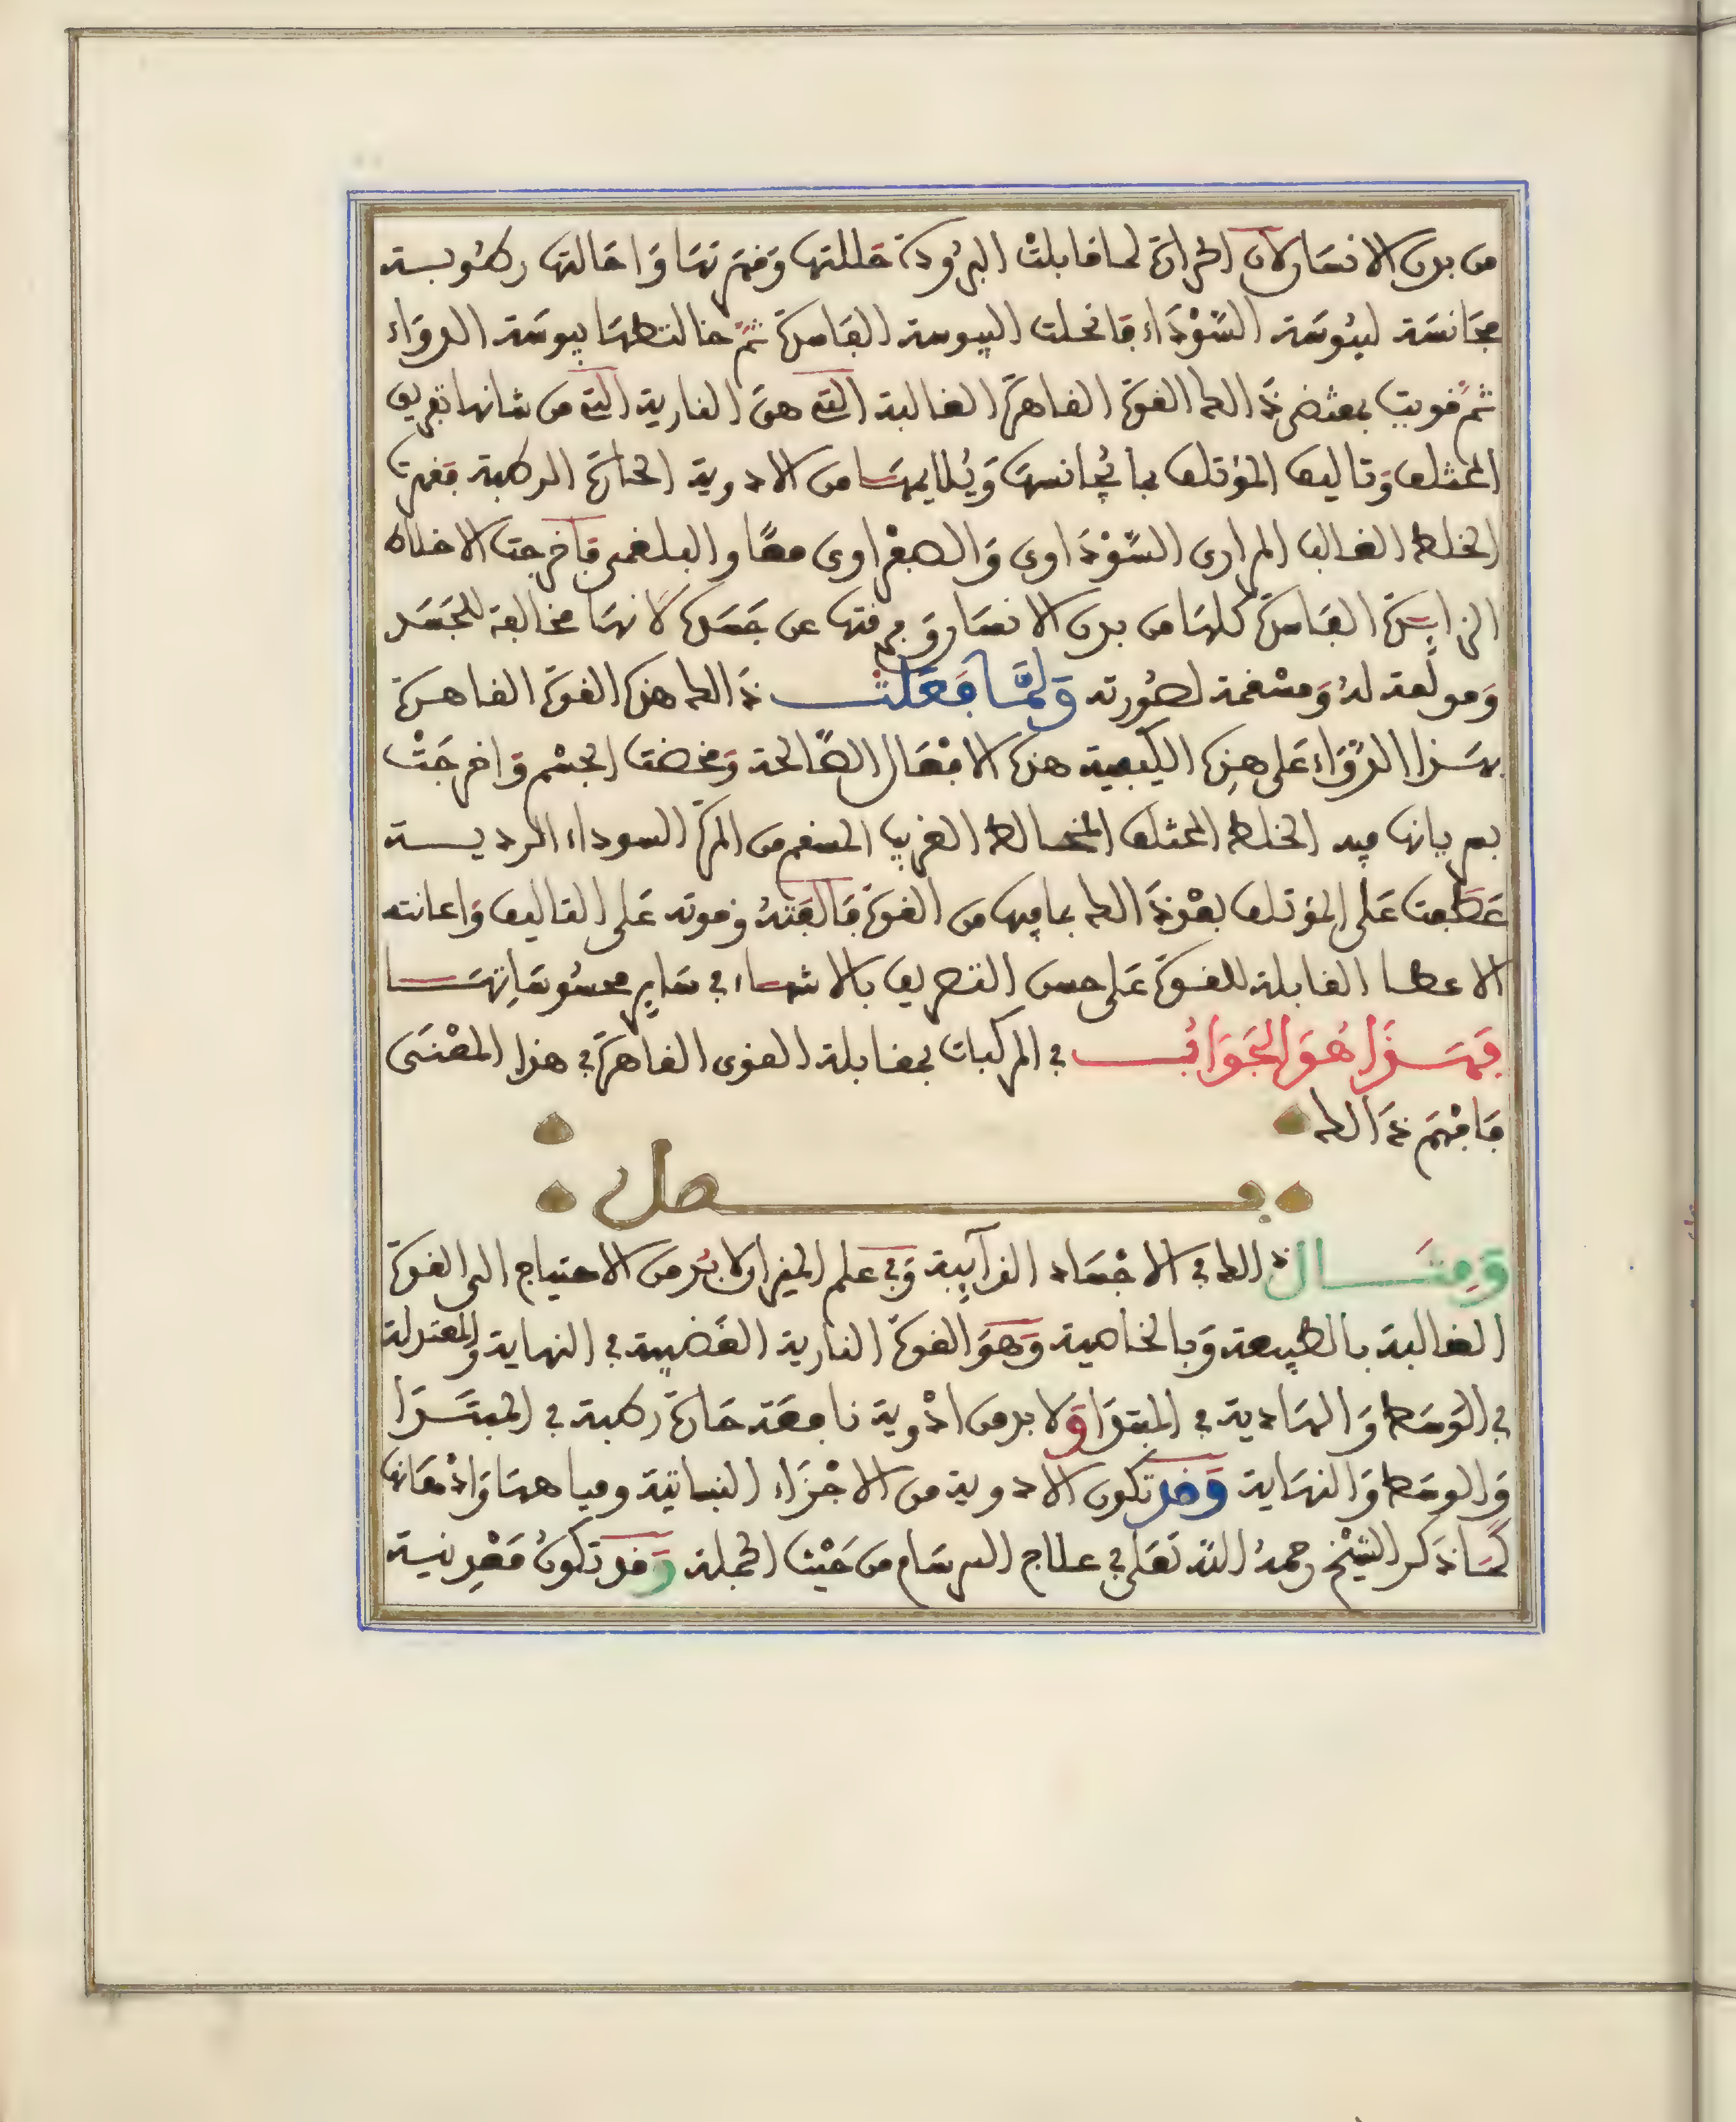 من بدن الانسان لان الحرارة لما قابلت البرودة حللتها وقهرتها واحالتها رطوبة
مجانسة ليبوسة السَّوْدَاء فانحلت اليبوسة الفاسدة ثمّ خالطتها يبوسة الدواء
ثمّ قويت بمقتضى ذالك القوة القاهرة الغالبة التي هي النارية التي من شانها تفريق
المختلف وتاليف المؤتلف بما يُجانسها وَيُلايمها من الادوية الحارة الرطبة فقهرت
الخلط الغالب المراري السَّوْدَاوي وَالصفْراوي معًا والبلغمي فاخرجت الاخلاط
الزايدة الفاسدة كلها من بدن الانسان وَ عن جَسَدِهِ لانها مخالفة للجَسَد
وَمولّعة لهُ وَمسْقمة لصُورته وَلَمَّا فَعَلَتْ ذالك هذه القوة القاهرة
بهذا الدَّوَاء عَلى هذِه الكيفية هذه الافعَال الصَّالحة وَمخضت الجسْم وَاخرجَتْ
بسريانها فيه الخلط المختلف المخالط الغريب المسقم من المرة السوداء الردية
عَطَفت عَلى المؤتلف بعْدَ ذالك بما فيها من القوة فَالفَتْهُ وقوته عَلى التاليف وَاعانته
الاعضا القابلة للقوة عَلى حسن التصريف بالاشياء في سَايِر محسُوسَاتِهَا
فَهَذَا هُوَ الجَوَابُ في المركبات بمقابلة القوى القاهرة في هذا المعْنَى
فَافْهَم ذَالك
فصل
وَمِثَال ذالك في الاجْسَاد الذآيبة وَفي علم الميزان لا بُدّ من الاحتياج الى القوة
الغالبة بالطبيعة وَبالخاصية وَهوَ القوة النارية الغَضبية في النهاية وَالمعتدلة
في الوَسَط وَالهادية في المبتدَا وَلا بد من ادْوية نافعَة حَارة رطبة في المبتَدَا
وَالوسَط وَالنهَاية وَقد تكون الادوية من الاجْزَاء النباتية ومياهها وَادْهَانها
كمَا ذكر الشيْخ رحمهُ اللّه تعَلى في علاج السرسَام من حَيْث الجملة وَقد تكونُ مَعْدِنية